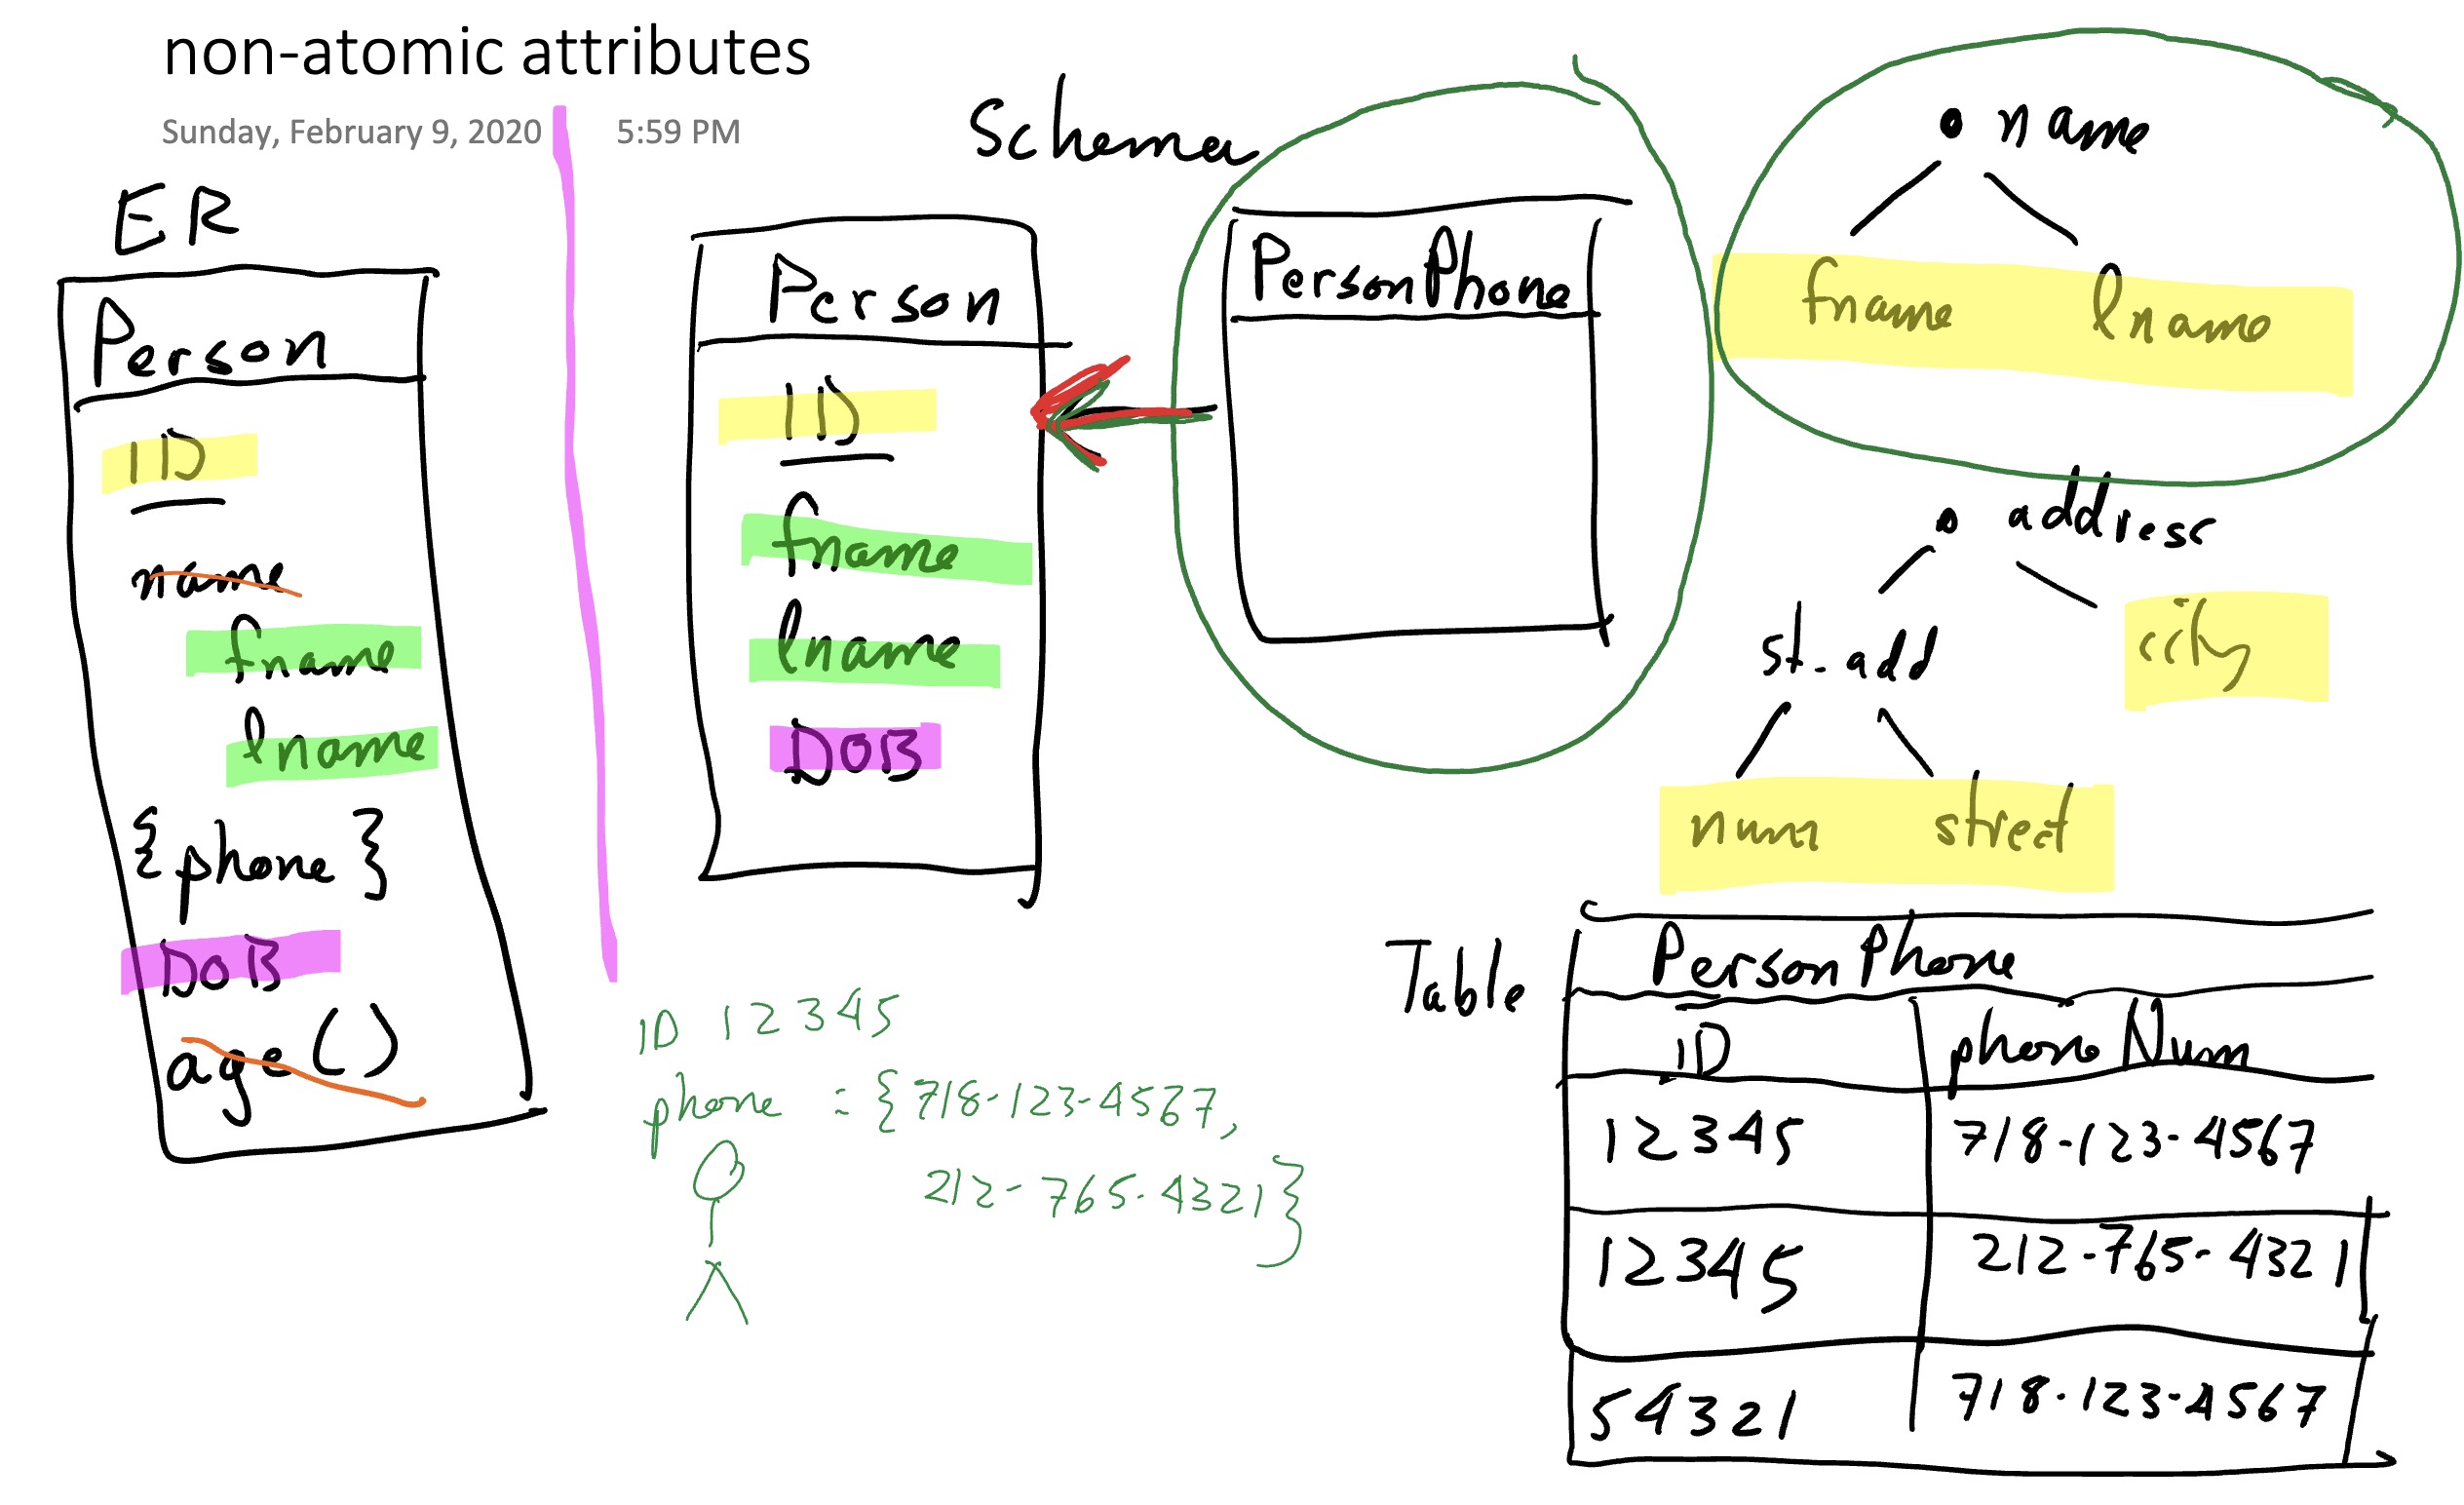 non-atomic attributes
Sunday, February 9, 2020 5:59 PM
ER
Person
ID
name
fname
lname
{phone}
DOB
age()
Schema
Person
ID
fname
lname
DOB
PersonPhone
name
fname lname
address
st_add city
num street
ID 12345
phone = {718-123-4567,
212-765-4321}
Table
PersonPhone
ID phoneNum
12345 718-123-4567
12345 212-765-4321
54321 718-123-4567